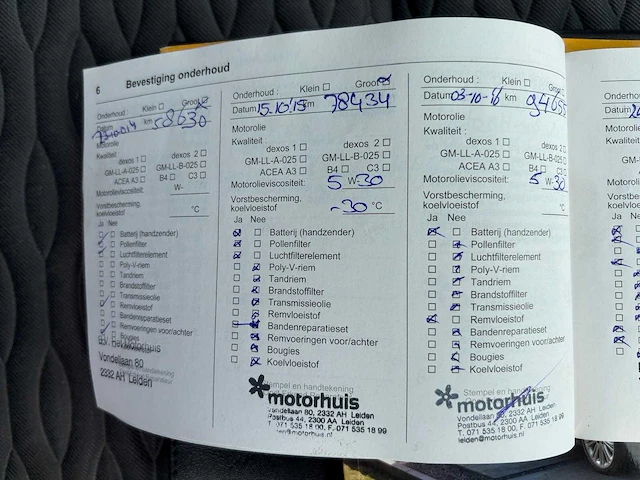 6 Bevestiging onderhoud
Onderhoud: Klein Groot
km 58630
Motorolie
Kwaliteit:
dexos 1 dexos 2
GM-LL-A-025 GM-LL-B-025
ACEA A3 B4 C3
Motorolieviscositeit: W-
Vorstbescherming,
koelvloeistof °C
Ja Nee
Batterij (handzender)
Pollenfilter
Luchtfilterelement
Poly-V-riem
Tandriem
Brandstoffilter
Transmissieolie
Remvloeistof
Bandenreparatieset
Remvoeringen voor/achter
Bougies
Motorhuis
Vondellaan 80
2332 AH Leiden
Onderhoud: Klein Groot
Datum 15.10.'15 km 78434
Motorolie
Kwaliteit:
dexos 1 dexos 2
GM-LL-A-025 GM-LL-B-025
ACEA A3 B4 C3
Motorolieviscositeit: 5 W-30
Vorstbescherming,
koelvloeistof -30 °C
Ja Nee
Batterij (handzender)
Pollenfilter
Luchtfilterelement
Poly-V-riem
Tandriem
Brandstoffilter
Transmissieolie
Remvloeistof
Bandenreparatieset
Remvoeringen voor/achter
Bougies
Koelvloeistof
Stempel en handtekening
motorhuis
Vondellaan 80, 2332 AH Leiden
Postbus 44, 2300 AA Leiden
T. 071 535 18 00, F. 071 535 18 99
leiden@motorhuis.nl
Onderhoud: Klein Groot
Datum 03-10-16 km
Motorolie
Kwaliteit:
dexos 1 dexos 2
GM-LL-A-025 GM-LL-B-025
ACEA A3 B4 C3
Motorolieviscositeit: 5 W-30
Vorstbescherming,
koelvloeistof °C
Ja Nee
Batterij (handzender)
Pollenfilter
Luchtfilterelement
Poly-V-riem
Tandriem
Brandstoffilter
Transmissieolie
Remvloeistof
Bandenreparatieset
Remvoeringen voor/achter
Bougies
Koelvloeistof
Stempel en handtekening
motorhuis
Vondellaan 80, 2332 AH Leiden
Postbus 44, 2300 AA Leiden
T. 071 535 18 00, F. 071 535 18 99
leiden@motorhuis.nl